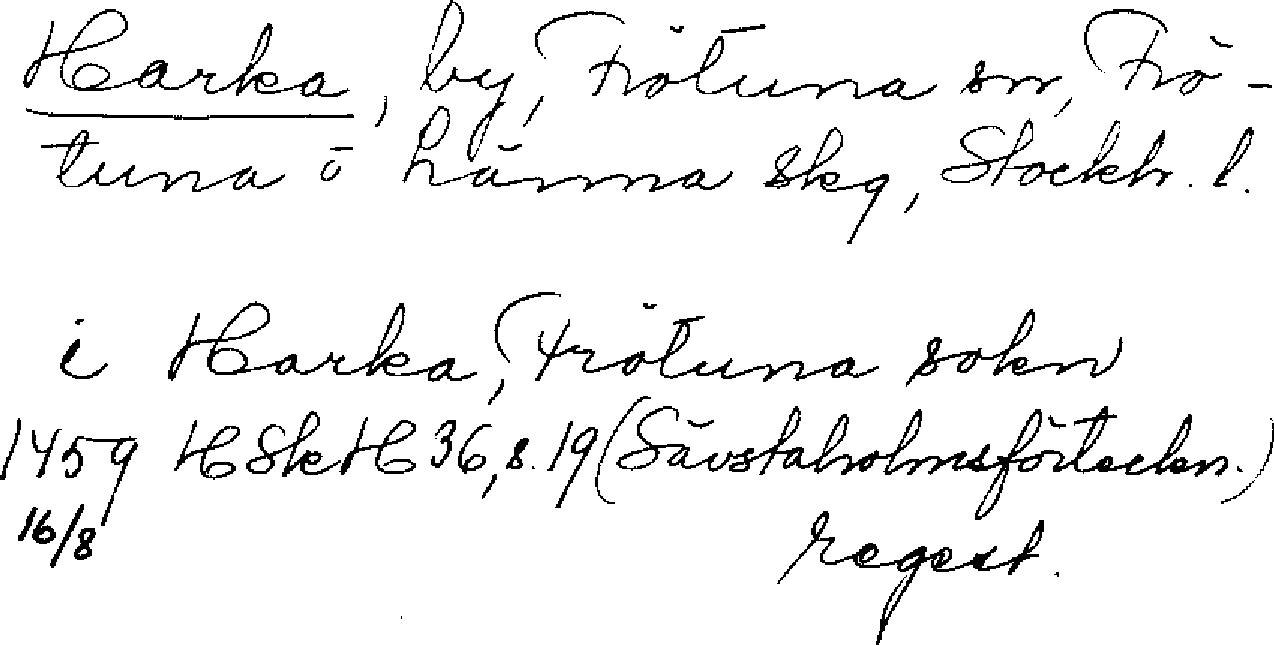 Harka, by, Frötuna sn, Frö-
tuna o Länna skg, Stockh. l.
i Harka, Frötuna sokn
1459 HSkH 36, s. 19 (Sävstaholmsförteckn.)
16/8 regest.